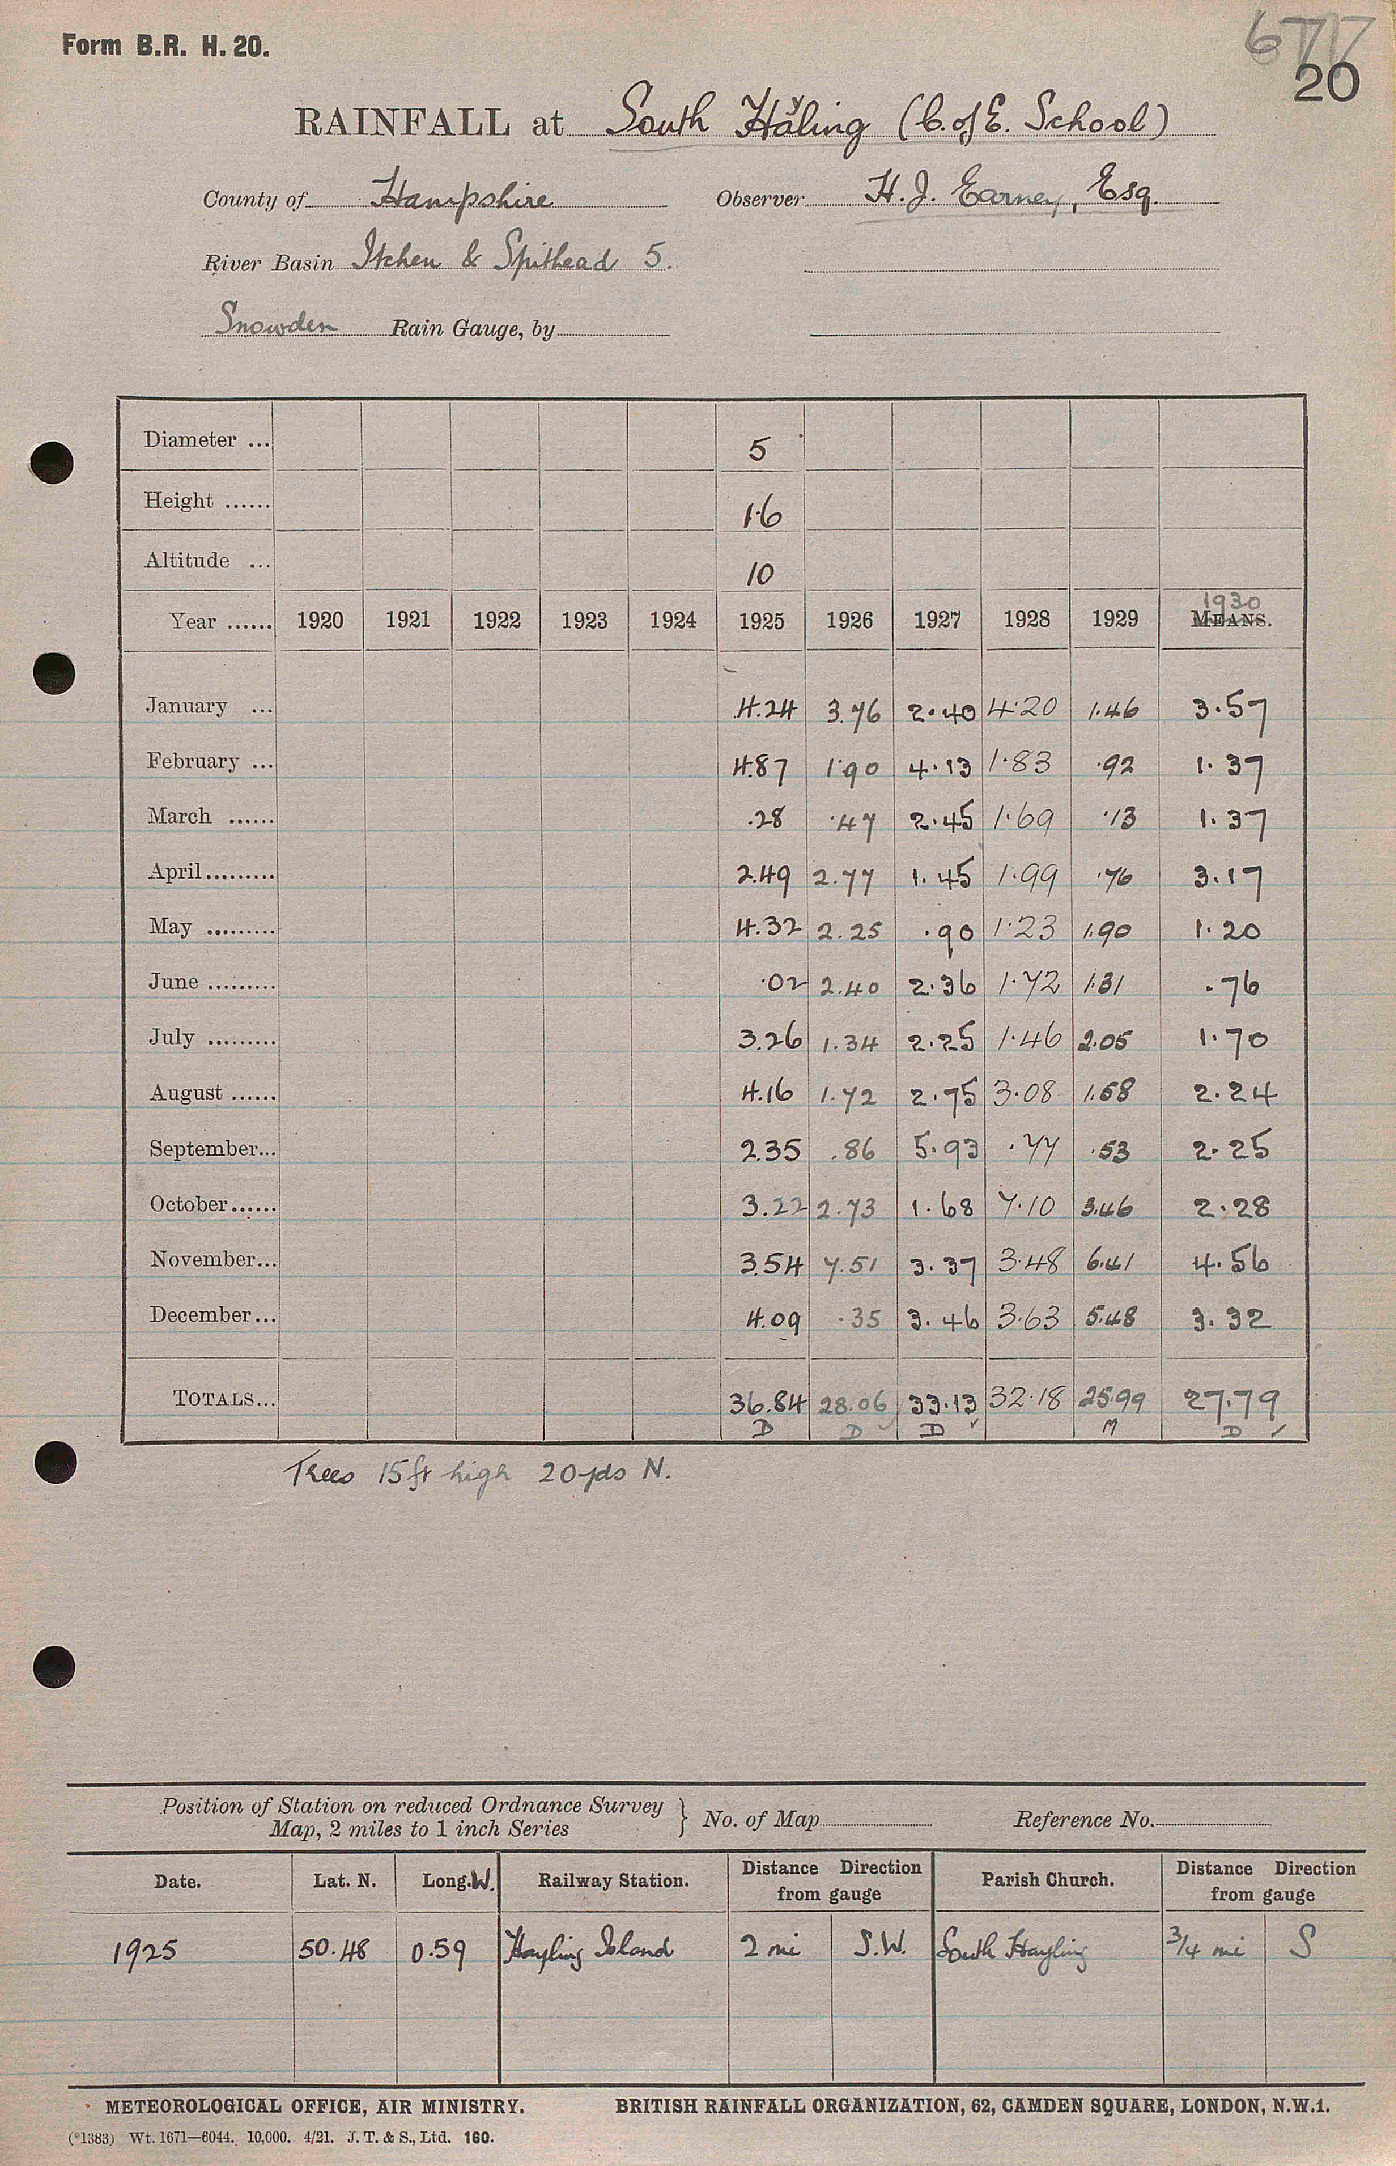 Form B.R. H. 20.
6717
20
RAINFALL at South Haling (C. of E. School)
y
County of Hampshire Observer H. J. Earney, Esq.
River Basin Itchen & Spithead 5.
Snowden Rain Gauge, by
Diameter ... 5
Height ...... 1·6
Altitude ... 10
1930
Year ...... 1920 1921 1922 1923 1924 1925 1926 1927 1928 1929 MEANS.
January ... 4.24 3.76 2.40 4.20 1.46 3.57
February ... 4.87 1.90 4.13 1.83 .92 1.37
March ...... .28 .47 2.45 1.69 .13 1.37
April ......... 2.49 2.77 1.45 1.99 .76 3.17
May ......... 4.32 2.25 .90 1.23 1.90 1.20
June ......... .02 2.40 2.36 1.72 1.31 .76
July ......... 3.26 1.34 2.25 1.46 2.05 1.70
August ...... 4.16 1.72 2.75 3.08 1.58 2.24
September... 2.35 .86 5.93 .77 .53 2.25
October...... 3.22 2.73 1.68 7.10 3.46 2.28
November... 3.54 7.51 3.37 3.48 6.41 4.56
December... 4.09 .35 3.46 3.63 5.48 3.32
TOTALS... 36.84 28.06 33.13 32.18 25.99 27.79
D D D M D
Trees 15ft high 20yds N.
Position of Station on reduced Ordnance Survey
Map, 2 miles to 1 inch Series } No. of Map Reference No.
Date. Lat. N. Long. W. Railway Station. Distance Direction from gauge Parish Church. Distance Direction from gauge
1925 50.48 0.59 Hayling Island 2 mi S.W. South Hayling 3/4 mi S
METEOROLOGICAL OFFICE, AIR MINISTRY. BRITISH RAINFALL ORGANIZATION, 62, CAMDEN SQUARE, LONDON, N.W.1.
(*1383) Wt. 1671—6044. 10,000. 4/21. J. T. & S., Ltd. 160.